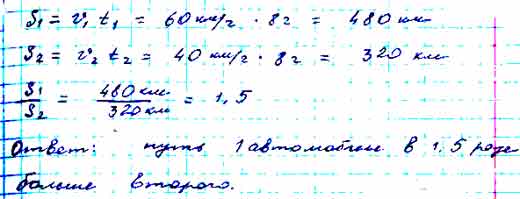 S₁ = v₁ t₁ = 60 км/г · 8г = 480 км
S₂ = v₂ t₂ = 40 км/г · 8г = 320 км
S₁/S₂ = 480 км/320 км = 1,5
Ответ: путь 1 автомобиле в 1.5 разе
больше второго.